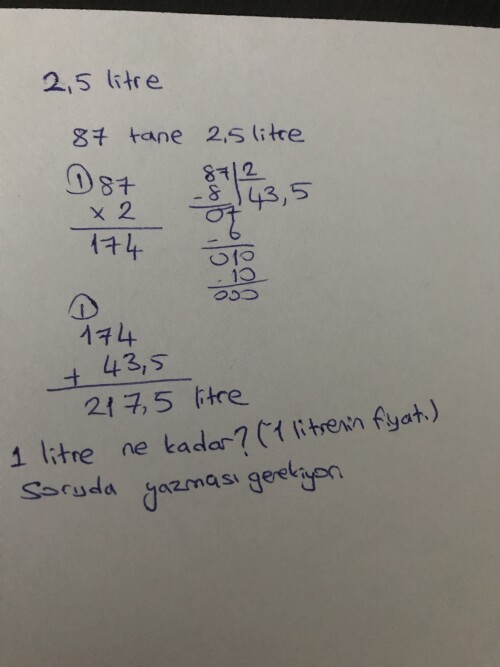 2,5 litre
87 tane 2,5 litre
① 87
x 2
174
87 2
-8 43,5
07
-6
010
.10
000
①
174
+ 43,5
217,5 litre
1 litre ne kadar? (1 litrenin fiyatı.)
Soruda yazması gerekiyor.